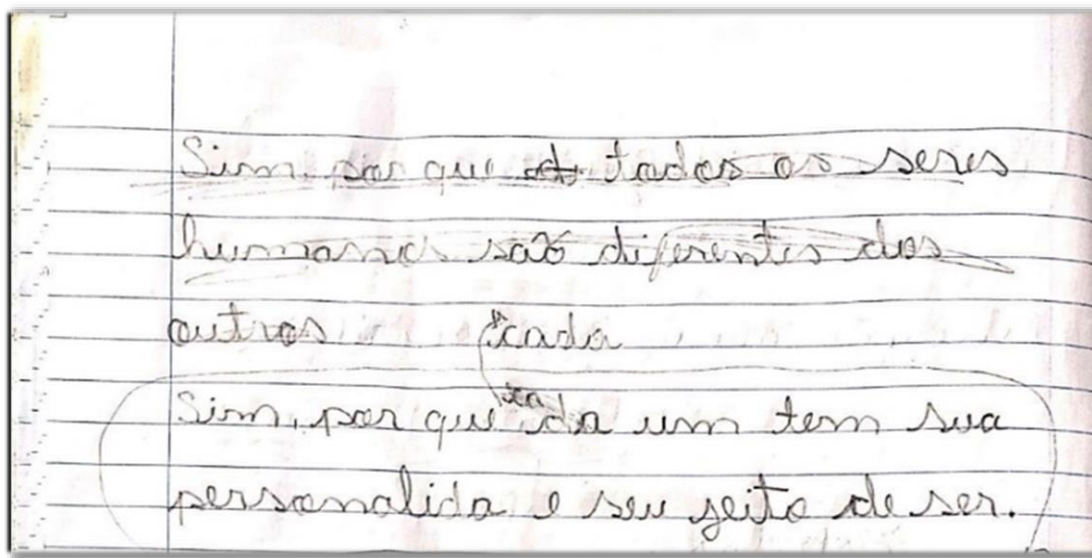 Sim, por que todos os seres
humanos são diferentes dos
outros
cada
ca
Sim, por que da um tem sua
personalida e seu jeito de ser.